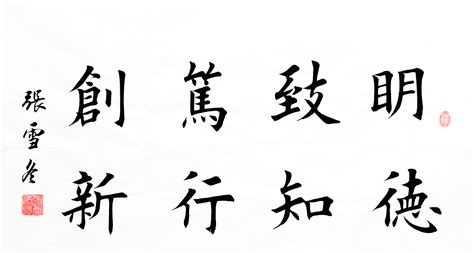 明德
致知
篤行
創新
張雪冬